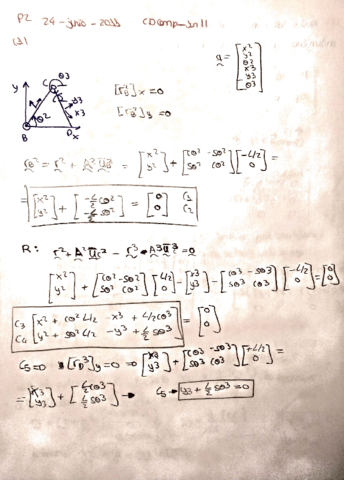 P2 24-junio-2011 CDComp-Jn11
(31)
q = [x2 y2 θ2 x3 y3 θ3]
y C θ3
A y3
θ2 x3
B D x
[r_B^2]x = 0
[r_B^2]y = 0
r_B^2 = r^2 + A^2 u_B^2 = [x2 y2] + [cθ2 -sθ2 sθ2 cθ2] [-L/2 0] =
= [x2 y2] + [-L/2 cθ2 -L/2 sθ2] = [0 0] C1 C2
R: r^2 + A^2 u_C^2 - r^3 - A^3 u^3 = 0
[x2 y2] + [cθ2 -sθ2 sθ2 cθ2] [L/2 0] - [x3 y3] - [cθ3 -sθ3 sθ3 cθ3] [-L/2 0] = [0 0]
C3 [x2 + cθ2 L/2 - x3 + L/2 cθ3
C4 y2 + sθ2 L/2 - y3 + L/2 sθ3] = [0 0]
C5=0 [r_D^3]y = 0 ⇒ [x3 y3] + [cθ3 -sθ3 sθ3 cθ3] [+L/2 0] =
= [x3 y3] + [L/2 cθ3 L/2 sθ3] → C5 → y3 + L/2 sθ3 = 0